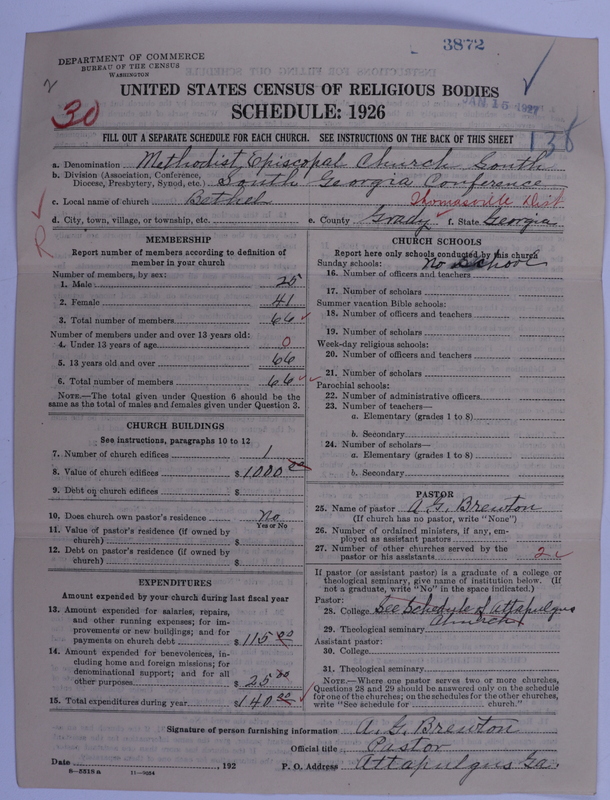 3872
DEPARTMENT OF COMMERCE
BUREAU OF THE CENSUS
WASHINGTON
JAN 15 1927
UNITED STATES CENSUS OF RELIGIOUS BODIES
30
SCHEDULE: 1926
FILL OUT A SEPARATE SCHEDULE FOR EACH CHURCH. SEE INSTRUCTIONS ON THE BACK OF THIS SHEET
138
a. Denomination Methodist Episcopal Church South
b. Division (Association, Conference, Diocese, Presbytery, Synod, etc.) South Georgia Conference
c. Local name of church Bethel Thomasville Dist
d. City, town, village, or township, etc. e. County Grady f. State Georgia
R
MEMBERSHIP
Report number of members according to definition of
member in your church
Number of members, by sex:
1. Male 25
2. Female 41
3. Total number of members 66
Number of members under and over 13 years old:
4. Under 13 years of age 0
5. 13 years old and over 66
6. Total number of members 66
NOTE.—The total given under Question 6 should be
same as the total of males and females given under Question 3.
CHURCH BUILDINGS
See instructions, paragraphs 10 to 12
7. Number of church edifices 1
8. Value of church edifices $1000 00
9. Debt on church edifices $
10. Does church own pastor's residence No
Yes or No
11. Value of pastor's residence (if owned by
church) $
12. Debt on pastor's residence (if owned by
church) $
EXPENDITURES
Amount expended by your church during last fiscal year
13. Amount expended for salaries, repairs,
and other running expenses; for im-
provements or new buildings; and for
payments on church debt $115 00
14. Amount expended for benevolences, in-
cluding home and foreign missions; for
denominational support; and for all
other purposes $25 00
15. Total expenditures during year $140 00
CHURCH SCHOOLS
Report here only schools conducted by this church
Sunday schools: No School
16. Number of officers and teachers
17. Number of scholars
Summer vacation Bible schools:
18. Number of officers and teachers
19. Number of scholars
Week-day religious schools:
20. Number of officers and teachers
21. Number of scholars
Parochial schools:
22. Number of administrative officers
23. Number of teachers—
a. Elementary (grades 1 to 8)
b. Secondary
24. Number of scholars—
a. Elementary (grades 1 to 8)
b. Secondary
PASTOR
25. Name of pastor A G. Brewton
(If church has no pastor, write "None")
26. Number of ordained ministers, if any, em-
ployed as assistant pastors
27. Number of other churches served by the
pastor or his assistants 2
If pastor (or assistant pastor) is a graduate of a college or
theological seminary, give name of institution below. (If
not a graduate, write "No" in the space indicated.)
Pastor:
28. College See Schedule of Attapulgus
Church
29. Theological seminary
Assistant pastor:
30. College
31. Theological seminary
NOTE.—Where one pastor serves two or more churches,
Questions 28 and 29 should be answered only on the schedule
for one of the churches; on the schedules for the other churches,
write "See schedule for church."
Signature of person furnishing information A. G. Brewton
Official title Pastor
Date , 192 P. O. Address Attapulgus Ga.
8—5518a 11—9084